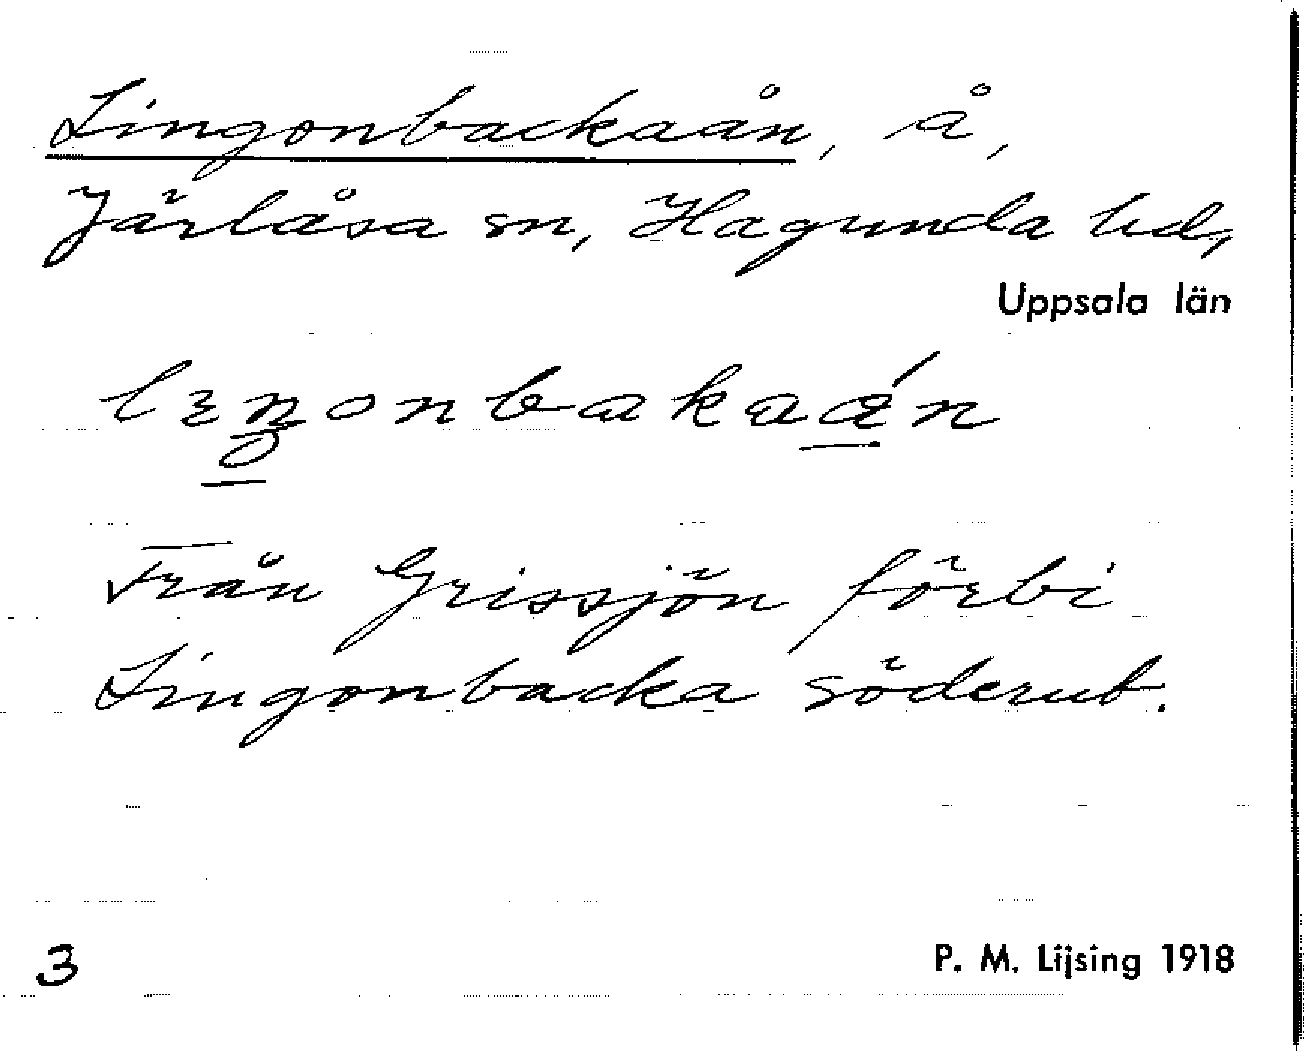 Lingonbackaån, å,
Järlåsa sn, Hagunda hd,
Uppsala län
Från Grissjön förbi
Lingonbacka söderut.
3
P. M. Lijsing 1918